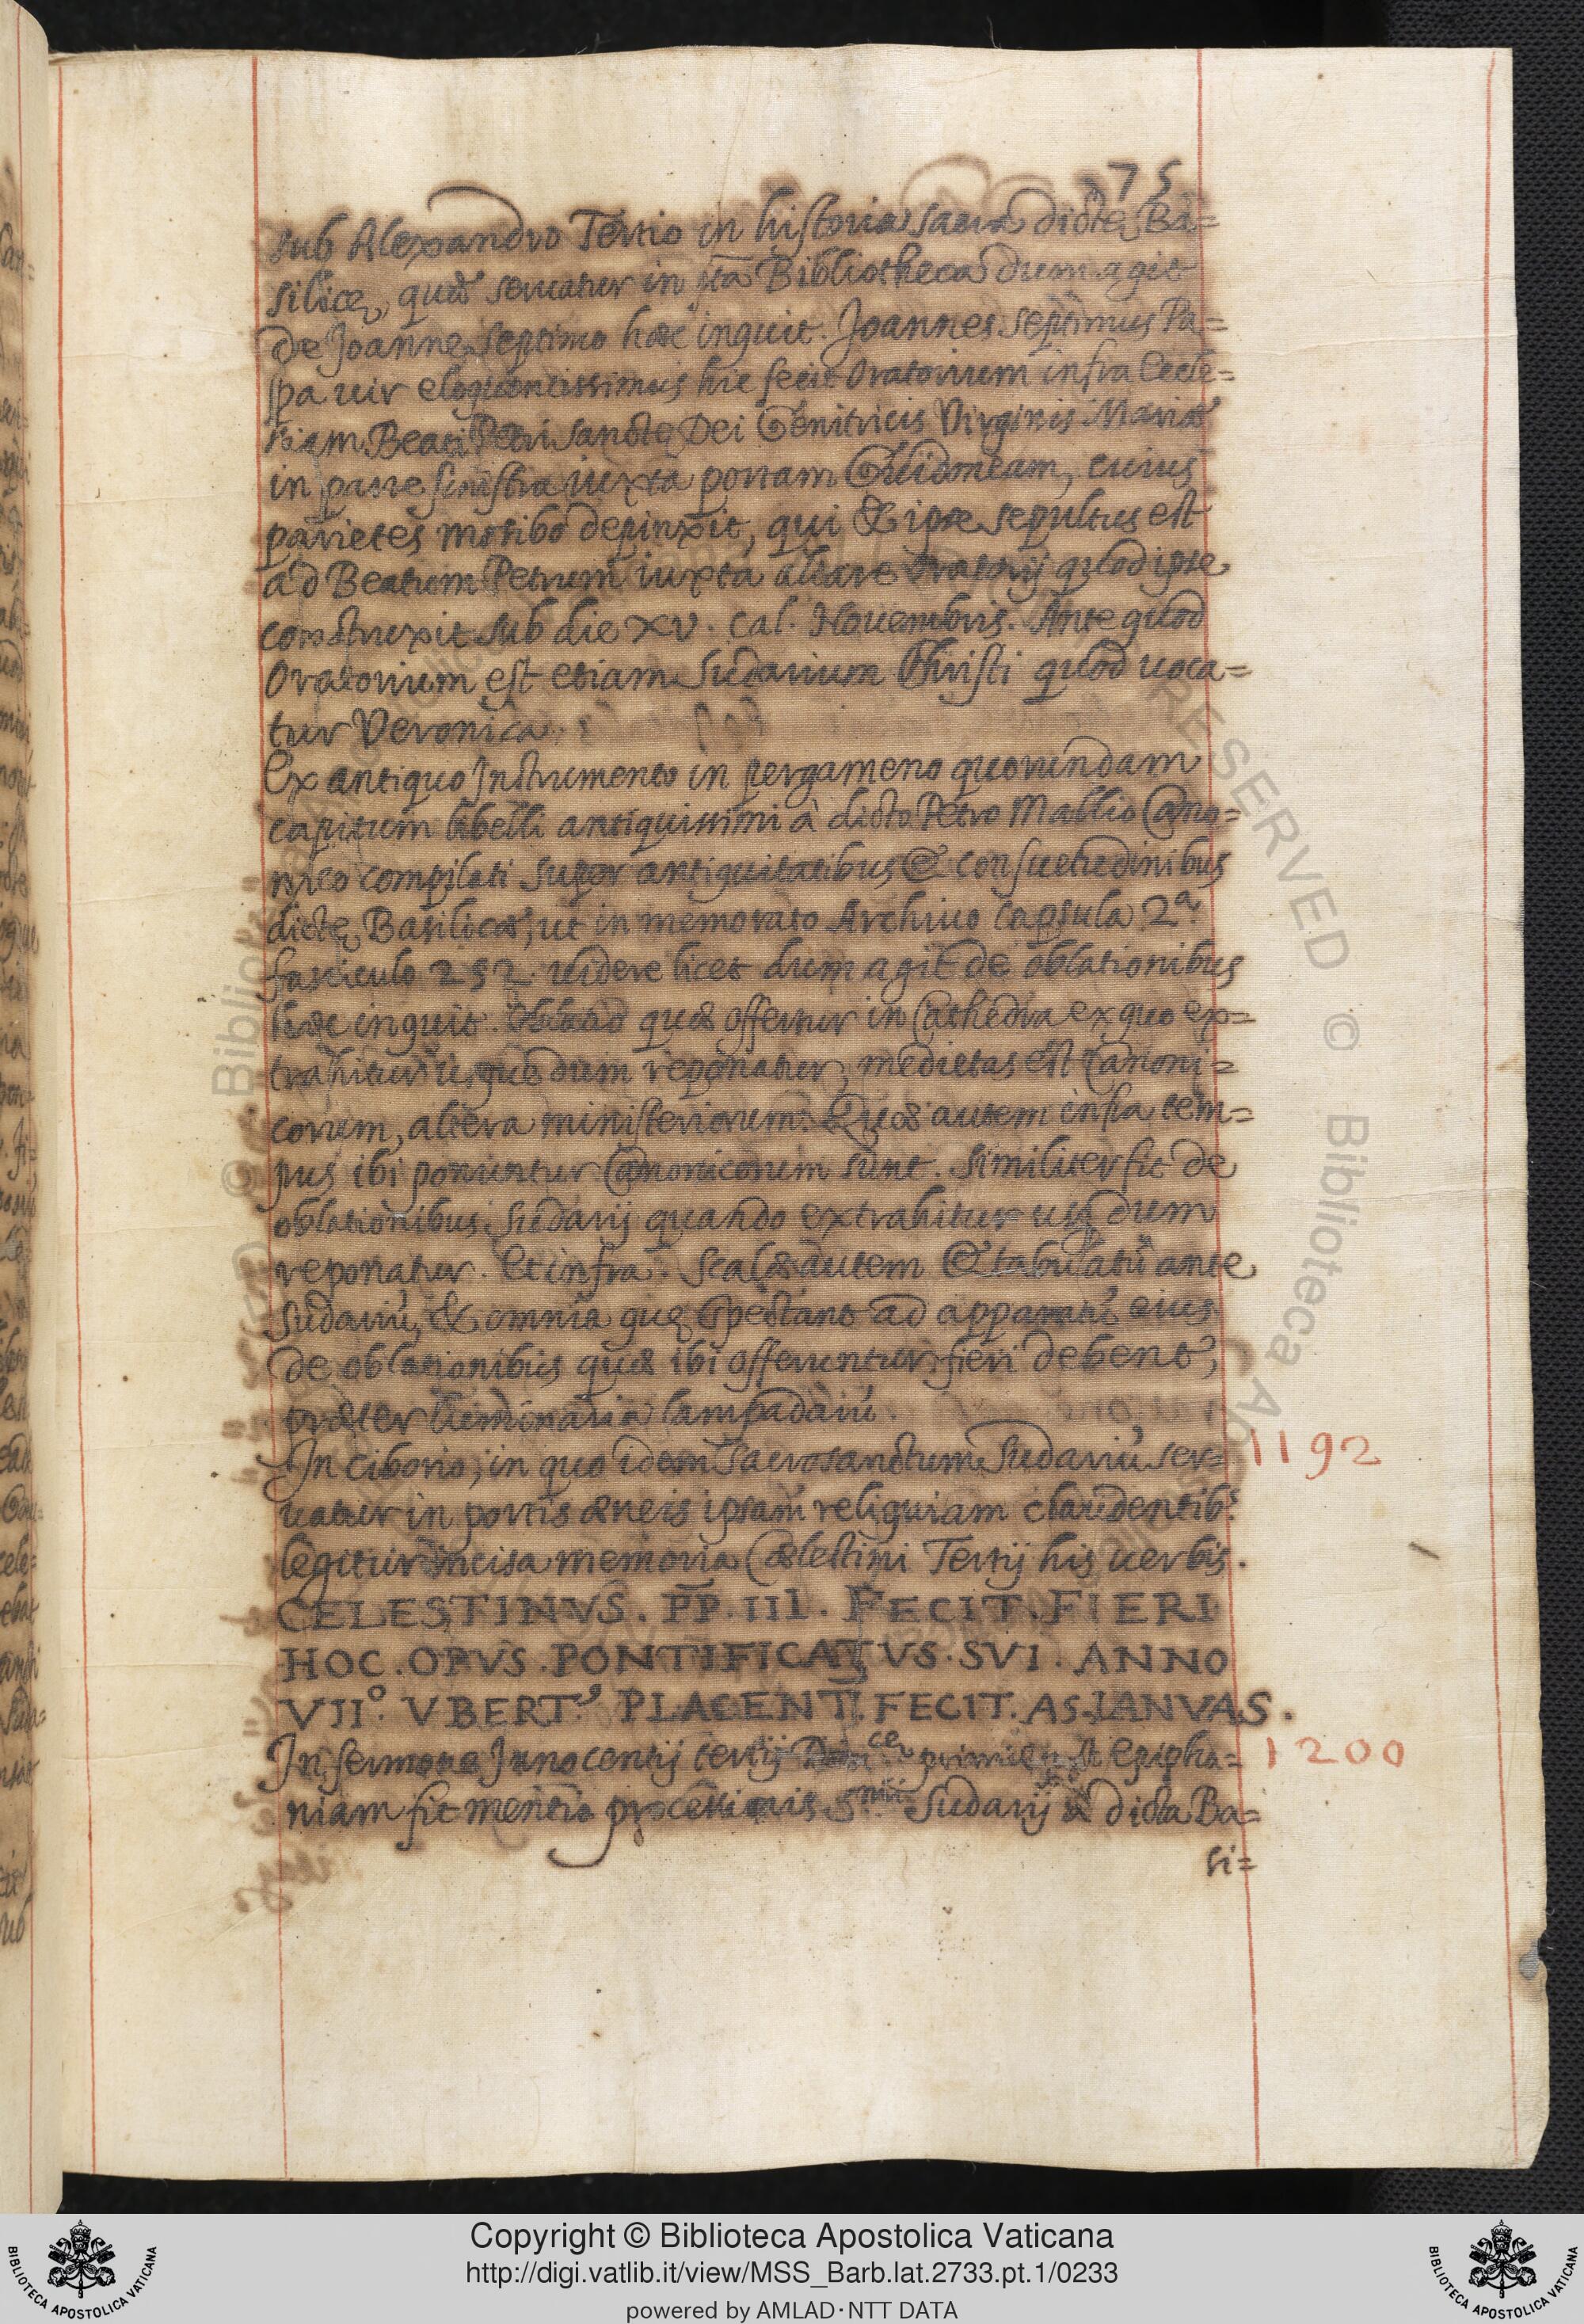 75
sub Alexandro Tertio in historia sacra dictę Ba=
silicę, quæ seruatur in sta Bibliotheca dum agit
de Joanne septimo hæc inquit. Joannes septimus Pa=
pa uir eloquentissimus hic fecit Oratorium infra Eccle=
siam Beati Petri sanctę Dei Genitricis Virginis Mariæ
in parte sinistra iuxta portam Guidoneam, cuius
parietes mosibo depinxit, qui & ipse sepultus est
ad Beatum Petrum iuxta altare Oratorij quod ipse
construxit sub die XV. Cal. Nouembris. Ante quod
Oratorium est etiam Sudarium Christi quod uoca=
tur Veronica.
Ex antiquo Instrumento in pergameno quorundam
capitum libelli antiquissimi à dicto Petro Mallio Cano=
nico compilati super antiquitatibus & consuetudinibus
dictę Basilicæ, ut in memorato Archiuo capsula 2ª
fasciculo 252. uidere licet dum agit de oblationibus
hæc inquit. Oblatio quæ offertur in Cathedra ex quo ex=
trahitur usque dum reponatur, medietas est Canoni=
corum, altera ministeriorum. Quæ autem infra tem=
pus ibi ponuntur Canonicorum sunt. Similiter fit de
oblationibus Sudarij quando extrahitur usq dum
reponatur. Et infra. Scalæ autem & tabulatũ ante
Sudariũ, & omnia quę spectant ad apparatũ eius
de oblationibus quæ ibi offeruntur fieri debent,
præter luminaria lampadarũ.
In ciborio, in quo idem Sacrosanctum Sudariũ ser=
1192
uatur in portis æneis ipsam reliquiam claudentibs
legitur incisa memoria Cælestini Tertij his uerbis.
CELESTINVS. PP. III. FECIT. FIERI
HOC. OPVS. PONTIFICATVS. SVI. ANNO
VIIº. VBERT' PLACENTI. FECIT. AS. IANVAS.
In sermone Innocentij tertij Domcę primę post Epipha=
1200
niam fit mentio processionis Smi Sudarij à dicta Ba=
si=
Copyright © Biblioteca Apostolica Vaticana
http://digi.vatlib.it/view/MSS_Barb.lat.2733.pt.1/0233
powered by AMLAD·NTT DATA
BIBLIOTECA APOSTOLICA VATICANA
BIBLIOTECA APOSTOLICA VATICANA